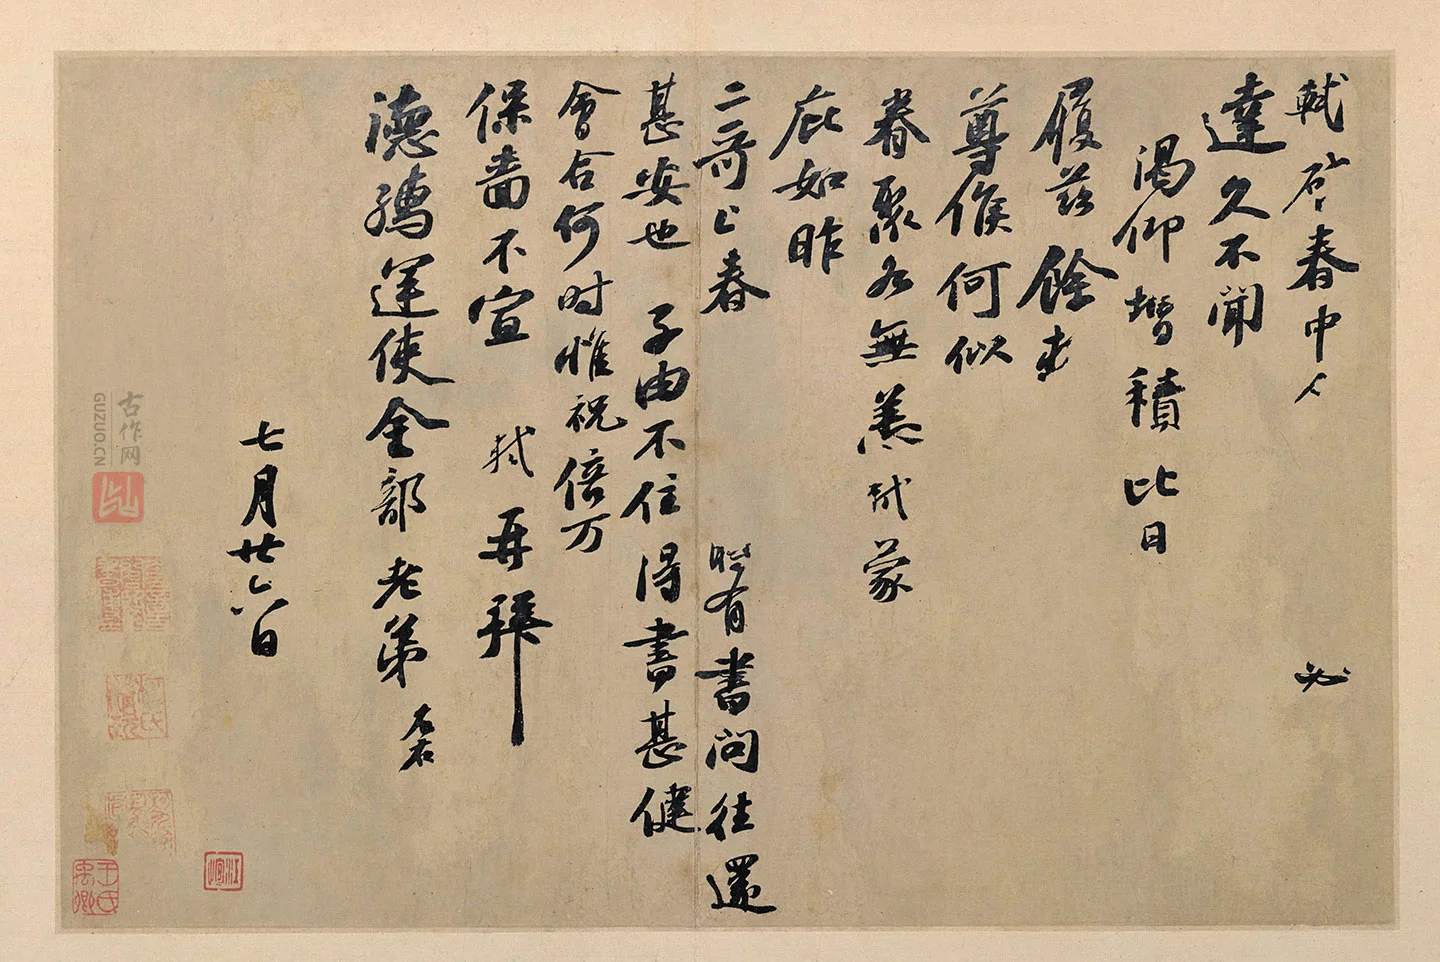 軾啓春中 必
達久不聞
渴仰增積比日
履茲餘
尊候何似
眷聚各無恙軾蒙
庇如昨
二哥上春 有書問往還
甚安也 子由不住得書甚健
會合何時惟祝倍万
保嗇不宣 軾再拜
德孺運使金部老弟
七月廿六日
古作网
GUZUO.CN
江恂
王氏禹卿